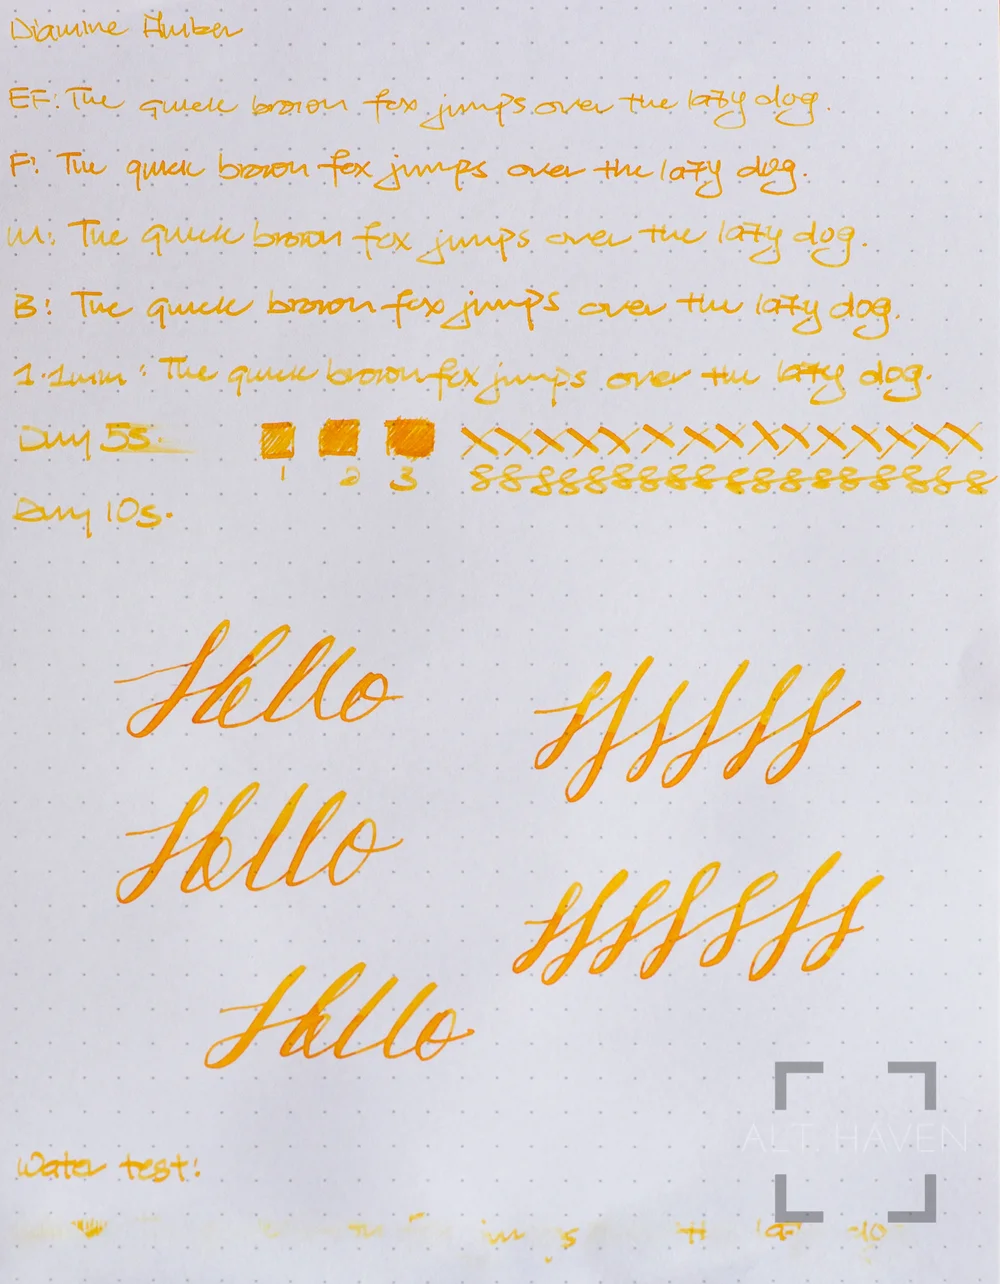 Diamine Amber
EF: The quick brown fox jumps over the lazy dog.
F: The quick brown fox jumps over the lazy dog.
M: The quick brown fox jumps over the lazy dog.
B: The quick brown fox jumps over the lazy dog.
1.1mm: The quick brown fox jumps over the lazy dog.
Dry 5s. XXXXXXXXXXXXXXXX
1 2 3 88888888888888888888
Dry 10s.
Hello
Hello
Hello
ALT. HAVEN
Water test: